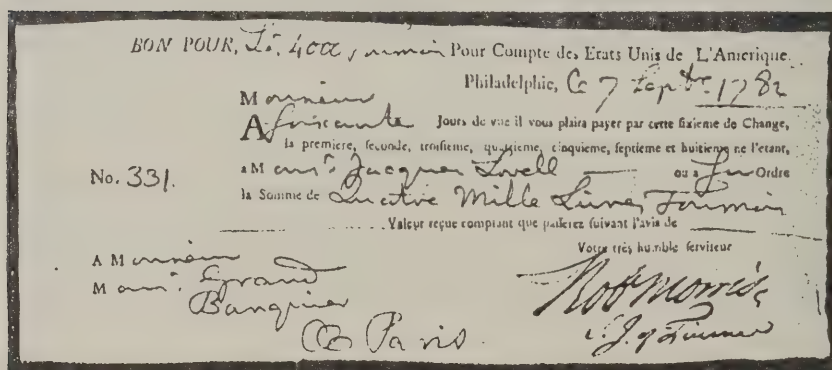 BON POUR, Lt. 4000 tournois Pour Compte des Etats Unis de L'Amerique.
Philadelphie, Ce 7 Septbre. 1782
Monsieur
A soixante Jours de vue il vous plaira payer par cette sixieme de Change,
la premiere, seconde, troisieme, quatrieme, cinquieme, septieme et huitieme ne l'etant,
No. 331. a Monsr. Jacques Lovell ou a Son Ordre
la Somme de Quatre Mille Livres Tournois
Valeur reçue comptant que passerez suivant l'avis de
Votre très humble serviteur
A Monsieur
Monsr. Grand
Banquier
A Paris.
Robt Morris
S. J. of Finance